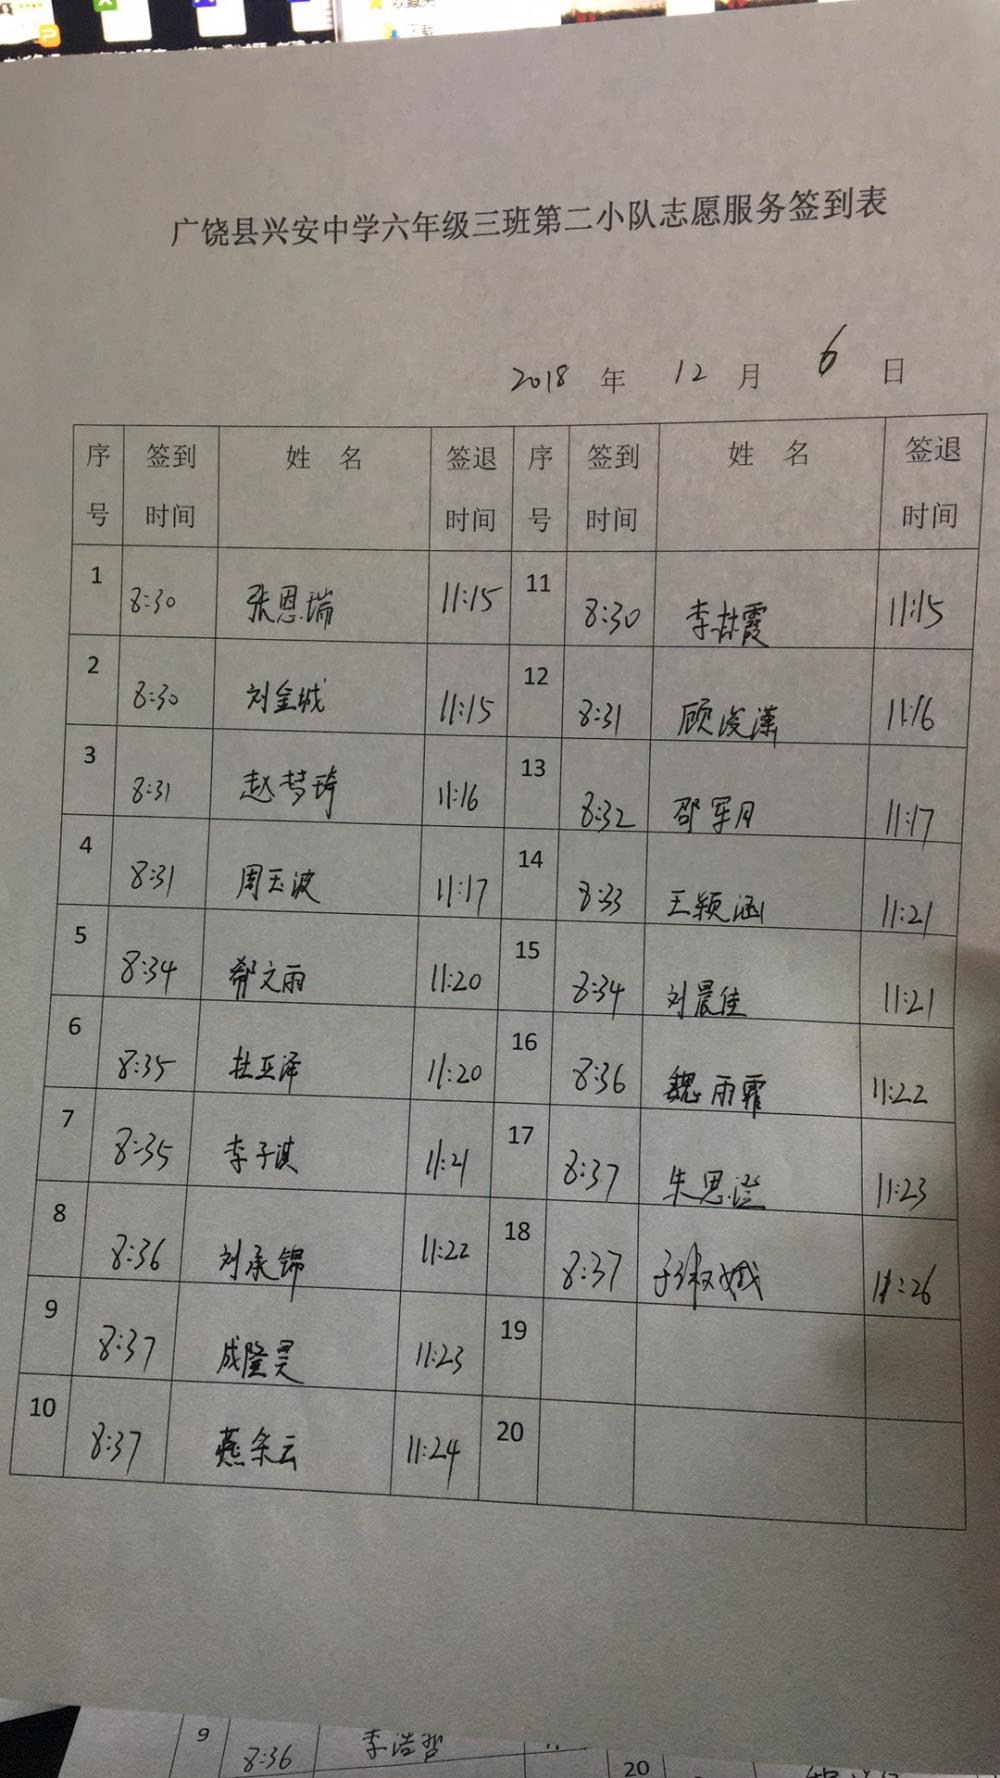 广饶县兴安中学六年级三班第二小队志愿服务签到表
2018 年 12 月 6 日
序号 签到时间 姓 名 签退时间 序号 签到时间 姓 名 签退时间
1 8:30 张恩瑞 11:15 11 8:30 李林霞 11:15
2 8:30 刘金城 11:15 12 8:31 顾俊潇 11:16
3 8:31 赵梦琦 11:16 13 8:32 邵军月 11:17
4 8:31 周玉波 11:17 14 8:33 王颖涵 11:21
5 8:34 郗文雨 11:20 15 8:34 刘晨佳 11:21
6 8:35 杜亚泽 11:20 16 8:36 魏雨霏 11:22
7 8:35 李子淇 11:21 17 8:37 朱思澄 11:23
8 8:36 刘承锦 11:22 18 8:37 孙淑娥 11:26
9 8:37 成隆昊 11:23 19
10 8:37 燕余云 11:24 20
9 8:36 李浩哲 20